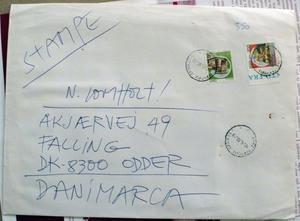 STAMPE
350
N. LOMHOLT!
AKJÆRVEJ 49
FALLING
DK-8300 ODDER
DANIMARCA